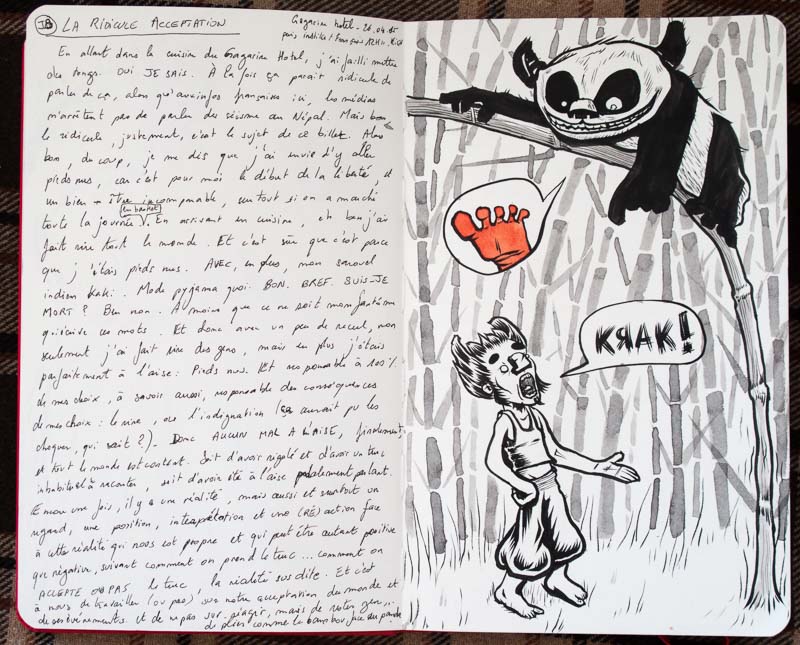 18 LA RIDICULE ACCEPTATION
Gagarin hotel - 26.04.15
En allant dans la cuisine du Gagarine Hotel, j'ai failli mettre
des tongs. OUI JE SAIS. A la fois ça parait ridicule de
parler de ça, alors qu'aux infos françaises ici, les médias
n'arrêtent pas de parler des séisme au Népal. Mais bon,
le ridicule, justement, c'est le sujet de ce billet. Alors
bon, du coup, je me dis que j'ai envie d'y aller
pieds nus, car c'est pour moi le début de la liberté, et
un bien-être incomparable, surtout si on a marché
toute la journée en basket. En arrivant en cuisine, eh ben j'ai
fait rire tout le monde. Et c'est sûr que c'est parce
que j'étais pieds nus. AVEC, en plus, mon sarouel
indien Kaki. Mode pyjama quoi. BON. BREF. SUIS-JE
MORT ? Ben non. A moins que ce ne soit mon fantôme
qui écrive ces mots. Et donc avec un peu de recul, non
seulement j'ai fait rire des gens, mais en plus j'étais
parfaitement à l'aise : Pieds nus. Et responsable à 100%
de mes choix, à savoir aussi, responsable des conséquences
de mes choix : le rire, ou l'indignation (ça aurait pu les
choquer, qui sait ?) - Donc AUCUN MAL A L'AISE, finalement,
et tout le monde est content. Soit d'avoir rigolé et d'avoir un truc
inhabituel à raconter, soit d'avoir été à l'aise parlant.
Encore une fois, il y a une réalité, mais aussi et surtout un
regard, une position, interprétation et une (RÉ)action face
à cette réalité qui nous est propre et qui peut être autant positive
que négative, suivant comment on prend le truc ... comment on
ACCEPTE OU PAS le truc, la réalité sus dite. Et c'est
à nous de travailler (ou pas) sur notre acceptation du monde et
de ses évènements. et de ne pas sur-réagir, mais de rester zen...
de plier comme le bambou face au panda.
KRAK!